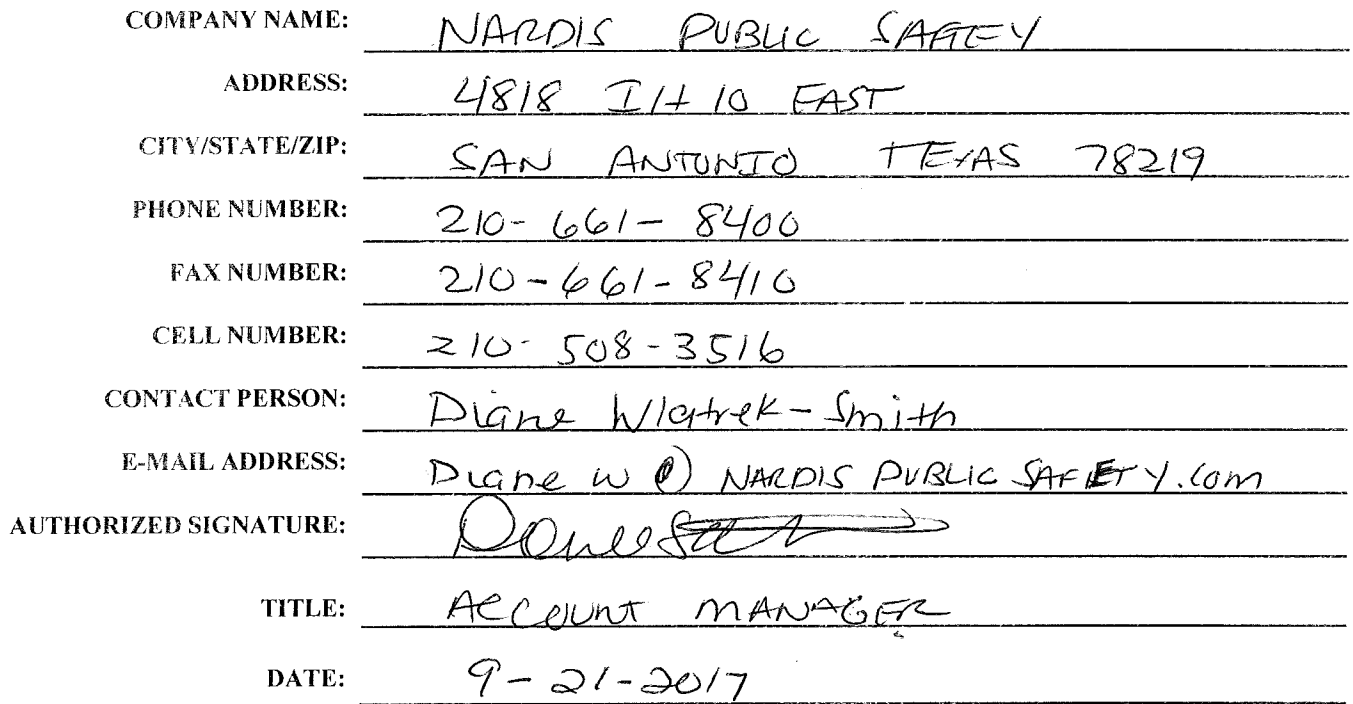 COMPANY NAME: NARDIS PUBLIC SAFTEY
ADDRESS: 4818 IH 10 EAST
CITY/STATE/ZIP: SAN ANTONIO TEXAS 78219
PHONE NUMBER: 210-661-8400
FAX NUMBER: 210-661-8410
CELL NUMBER: 210-508-3516
CONTACT PERSON: Diane Wiatrek-Smith
E-MAIL ADDRESS: Diane W @ NARDIS PUBLIC SAFETY.com
AUTHORIZED SIGNATURE:
TITLE: Account MANAGER
DATE: 9-21-2017